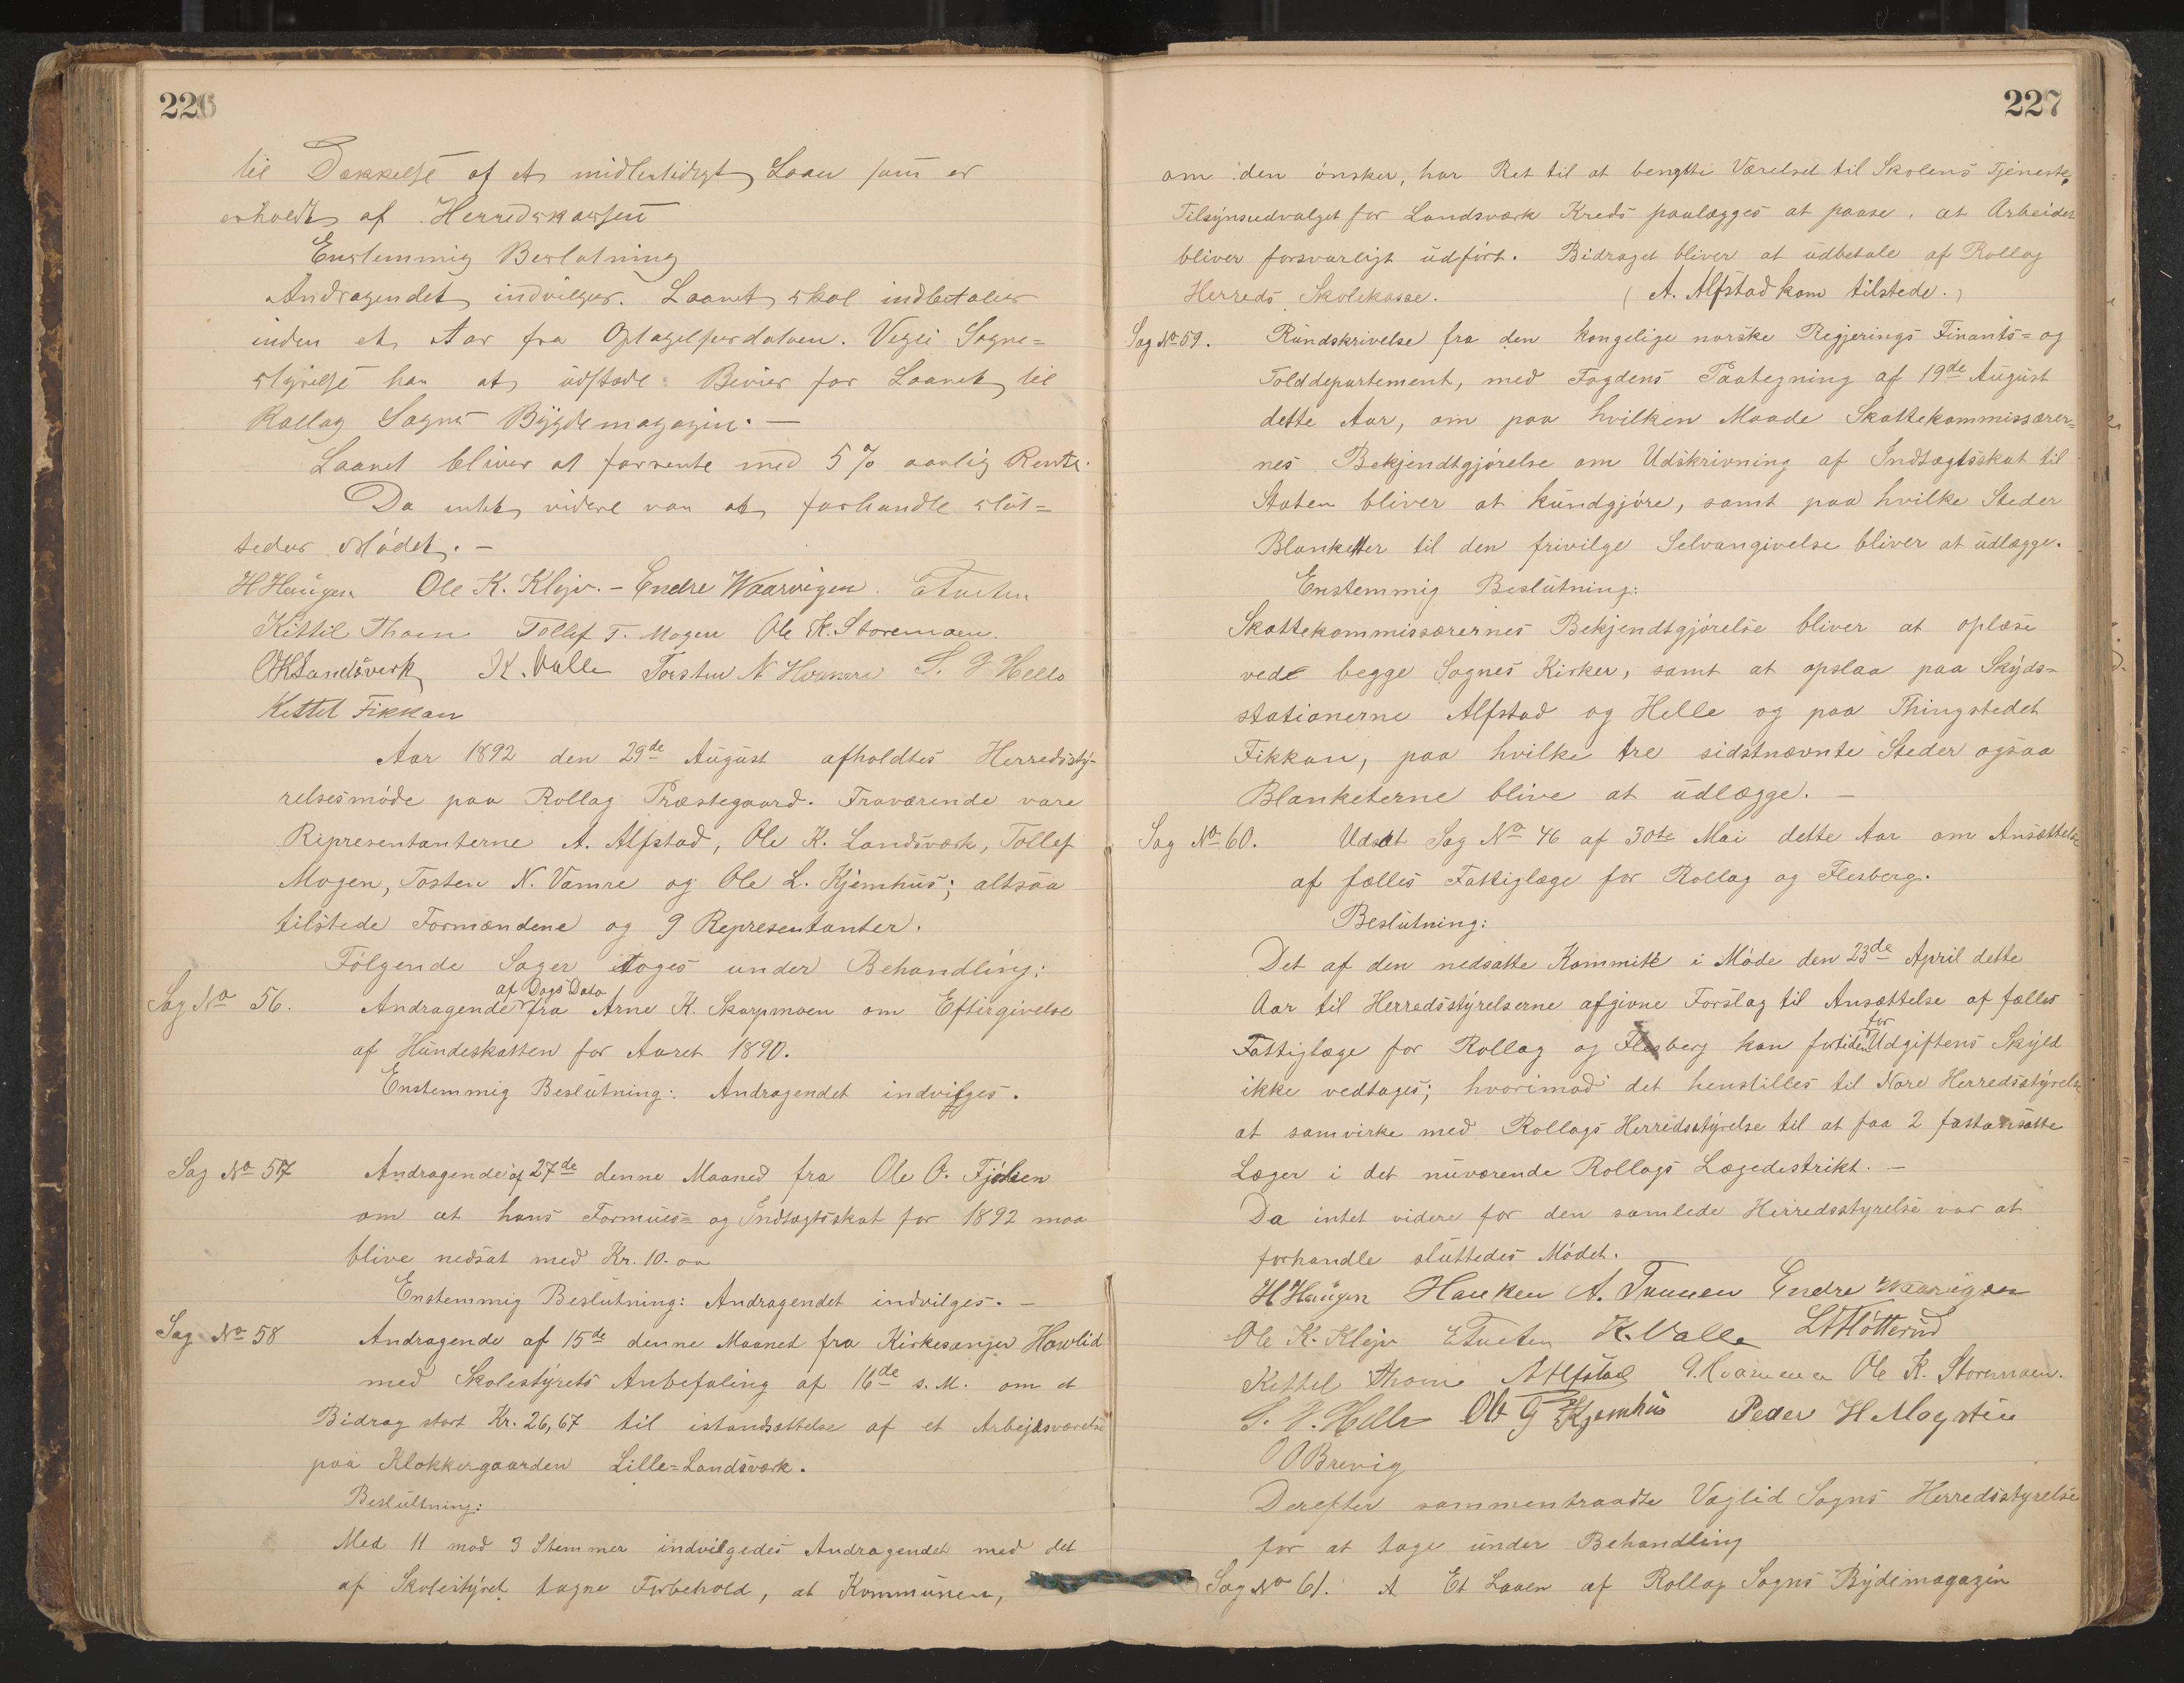 226
til Dækkelse af et midlertidigt Laan som er
erholdt af Herredskassen
Enstemmig Beslutning
Andragendet indvilges. Laanet skal indbetales
inden et Aar fra Optagelsesdatoen. Vegli Sogne=
styrelse har at udstæde Bevis for Laanet til
Rollag Sogns Bygdemagazin. —
Laanet bliver at forrente med 5 % aarlig Rente.
Da intet videre var at forhandle slut=
tedes Mødet. —
H Haugen Ole K. Klejv. – Endre Waarvigen. E Tveten
Kittil Thoen Tollef T. Mogen Ole K. Storemoen.
OK Landsverk K. Valle Torsten N S. G Helle
Kettil Fikkan
Aar 1892 den 29de August afholdtes Herredssty-
relsesmøde paa Rollag Præstegaard. Fraværende vare
Representanterne A. Alfstad, Ole K. Landsværk, Tollef
Mogen, Tosten N. Vamre og Ole L. Kjemhus; altsaa
tilstede Formændene og 9 Representanter.
Følgende Sager toges under Behandling:
Sag No 56. Andragende af Dags Dato fra Arne K. Skarpmoen om Eftergivelse
af Hundeskatten for Aaret 1890.
Enstemmig Beslutning: Andragendet indvilges.
Sag No 57 Andragende af 27de denne Maaned fra Ole O.
om at hans Formues= og Indtægtsskat for 1892 maa
blive nedsat med Kr. 10.00
Enstemmig Beslutning: Andragendet indvilges. —
Sag No 58 Andragende af 15de denne Maanet fra Kirkesanger Hawlid
med Skolestyrets Anbefaling af 16de s. M. om et
Bidrag stort Kr. 26,67 til istandsættelse af et Arbejdsværelse
paa Klokkergaarden Lille=Landsværk.
Beslutning:
Med 11 mod 3 Stemmer indvilgedes Andragendet med det
af Skolestyret tagne Forbehold, at Kommunen,
227
om den ønsker, har Ret til at benytte Værelset til Skolens Tjeneste.
Tilsynsudvalget for Landsværk Kreds paalægges at paase, at Arbeidet
bliver forsvarligt udført. Bidraget bliver at udbetale af Rollag
Herreds Skolekasse. (A. Alfstad kom tilstede.)
Sag No 59. Rundskrivelse fra den kongelige norske Regjerings Finants= og
Tolddepartement, med Fogdens Paategning af 19de August
dette Aar, om paa hvilken Maade Skattekommissærer=
nes Bekjendtgjørelse om Udskrivning af Indtægtsskat til
Staten bliver at kundgjøre, samt paa hvilke Steder
Blanketter til den frivilge Selvangivelse bliver at udlægge.
Enstemmig Beslutning:
Skattekommissærernes Bekjendtgjørelse bliver at oplæse
ved begge Sognes Kirker, samt at opslaa paa Skyds=
stationerne Alfstad og Helle og paa Thingstedet
Fikkan, paa hvilke tre sidstnævnte Steder ogsaa
Blanketerne blive at udlægge. —
Sag No 60. Udsat Sag No 46 af 30te Mai dette Aar om Ansættelse
af fælles Fattiglæge for Rollag og Flesberg.
Beslutning:
Det af den nedsatte Kommite i Møde den 23de April dette
Aar til Herredsstyrelserne afgivne Forslag til Ansættelse af fælles
Fattiglæge for Rollag og Flesberg kan fortiden for Udgiftens Skyld
ikke vedtages; hvorimod det henstilles til Nore Herredsstyrelse
at samvirke med Rollags Herredsstyrelse til at faa 2 fastansatte
Læger i det nuværende Rollags Lægedistrikt. —
Da intet videre for den samlede Herredsstyrelse var at
forhandle sluttedes Mødet.
H Haugen Hanken A. Endre Waarvigen
Ole K. Klejv E Tveten K. Valle
Kettel Thoen A Alfstad Ole K. Storemoen.
S. G. Helle Ole G Kjemhus Peder H Mogstein
O Brevig
Derefter sammentraadte Væglid Sogns Herredsstyrelse
for at tage under Behandling
Sag No 61. A Et Laaen af Rollag Sogns Bydemagazin